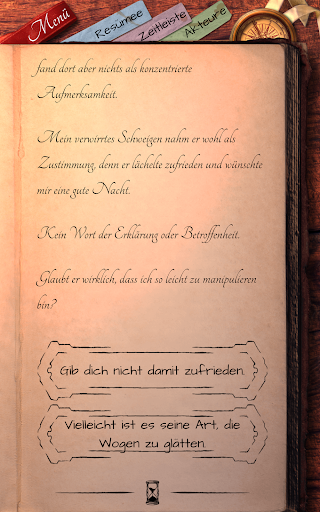 Menü
Resümee
Zeitleiste
Akteure
fand dort aber nichts als konzentrierte
Aufmerksamkeit.
Mein verwirrtes Schweigen nahm er wohl als
Zustimmung, denn er lächelte zufrieden und wünschte
mir eine gute Nacht.
Kein Wort der Erklärung oder Betroffenheit.
Glaubt er wirklich, dass ich so leicht zu manipulieren
bin?
Gib dich nicht damit zufrieden.
Vielleicht ist es seine Art, die
Wogen zu glätten.